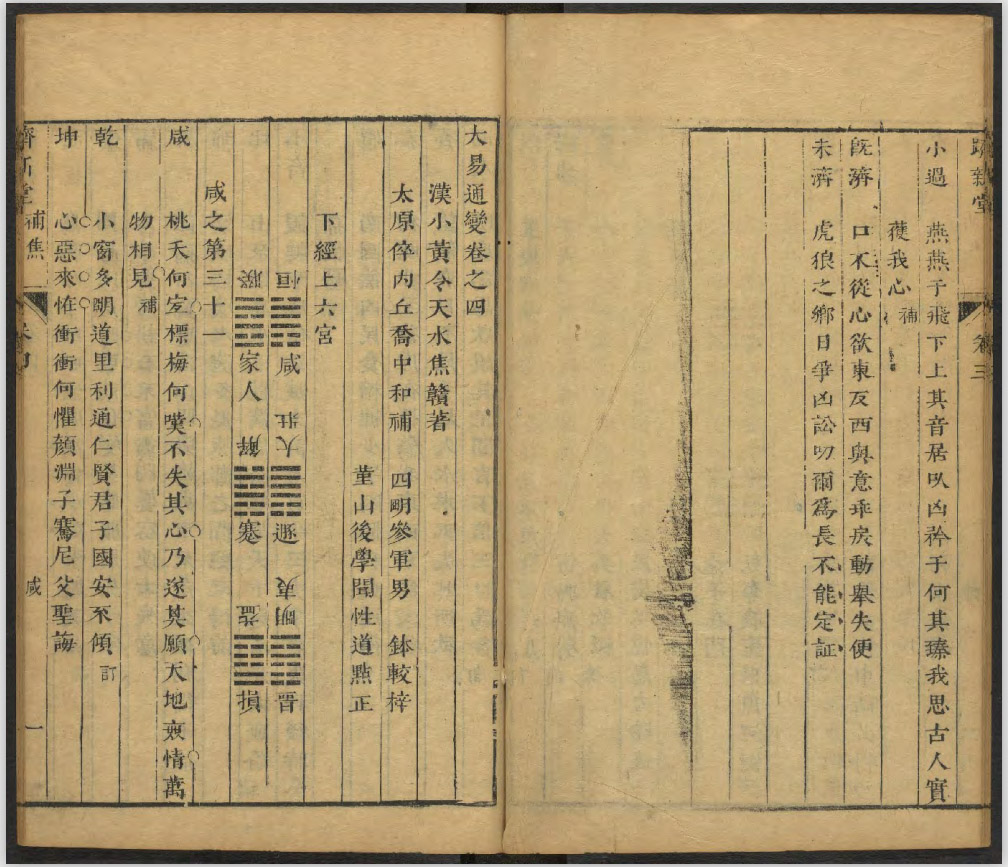 躋新堂
卷三
小過　燕燕于飛下上其音居以凶矜于何其臻我思古人實
獲我心補
旣濟　口不從心欲東反西與意乖戾動舉失便
未濟　虎狼之鄉日爭凶訟叨爾爲長不能定証
大易通變卷之四
漢小黃令天水焦贛著
太原倅內丘喬中和補　四明參軍男　鉢較梓
董山後學聞性道㸃正
下經上六宮
恒　咸　大壯　遯　明夷　晉
睽　家人　解　蹇　益　損
咸之第三十一
咸　桃夭何宐標梅何嘆不失其心乃遂其願天地㐮情萬
物相見補
乾　小窗多明道里利通仁賢君子國安不傾訂
坤　心惡來恠衝衝何懼顏淵子騫尼父聖誨
躋新堂
補焦
卷四
咸
一